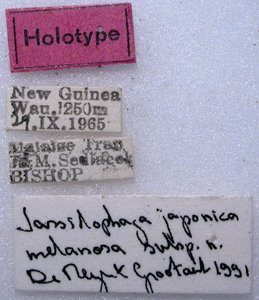 Holotype
New Guinea
Wau, 1250m
9.IX.1965
Malaise Trap
M. Sedlacek
BISHOP
Jassidophaga japonica
melanosa subsp. n.
De Meyer & Grootaert 1991